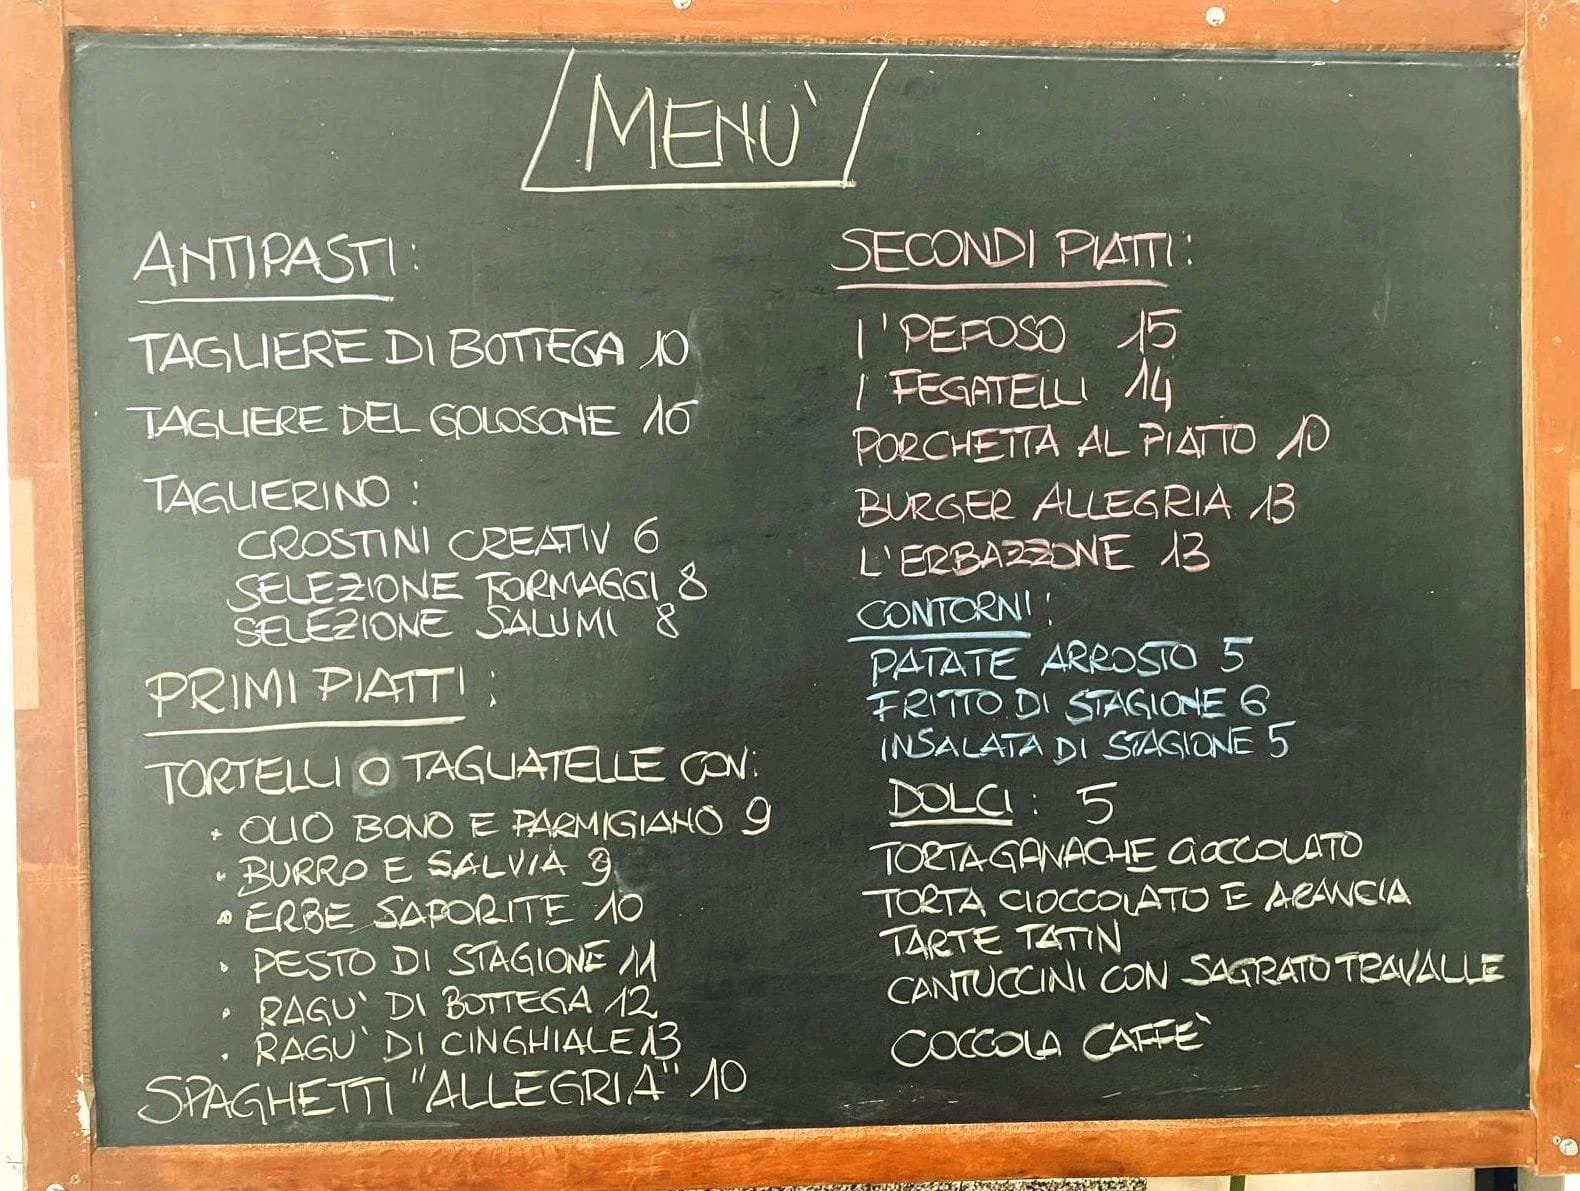 MENU'
ANTIPASTI:
TAGLIERE DI BOTTEGA 10
TAGLIERE DEL GOLOSONE 16
TAGLIERINO:
CROSTINI CREATIVI 6
SELEZIONE FORMAGGI 8
SELEZIONE SALUMI 8
PRIMI PIATTI:
TORTELLI O TAGLIATELLE CON:
• OLIO BONO E PARMIGIANO 9
• BURRO E SALVIA 9
• ERBE SAPORITE 10
• PESTO DI STAGIONE 11
• RAGU' DI BOTTEGA 12
• RAGU' DI CINGHIALE 13
SPAGHETTI "ALLEGRIA" 10
SECONDI PIATTI:
I' PEPOSO 15
I FEGATELLI 14
PORCHETTA AL PIATTO 10
BURGER ALLEGRIA 13
L'ERBAZZONE 13
CONTORNI:
PATATE ARROSTO 5
FRITTO DI STAGIONE 6
INSALATA DI STAGIONE 5
DOLCI: 5
TORTA GANACHE CIOCCOLATO
TORTA CIOCCOLATO E ARANCIA
TARTE TATIN
CANTUCCINI CON SAGRATO TRAVALLE
COCCOLA CAFFE'